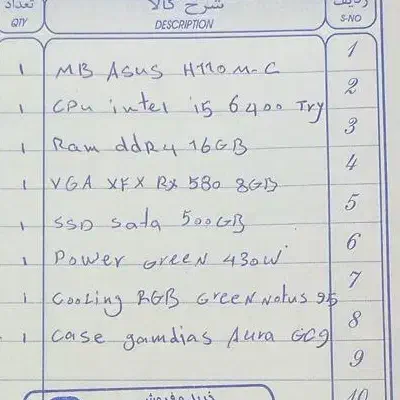 تعداد شرح کالا ردیف
QTY DESCRIPTION S-NO
1 MB Asus H110M-C 1
1 CPU intel i5 6400 Try 2
1 Ram ddR4 16GB 3
1 VGA XFX RX 580 8GB 4
1 SSD Sata 500GB 5
1 Power Green 430W 6
1 Cooling RGB Green Notus 95 7
1 Case gamdias Aura GC9 8
9
10